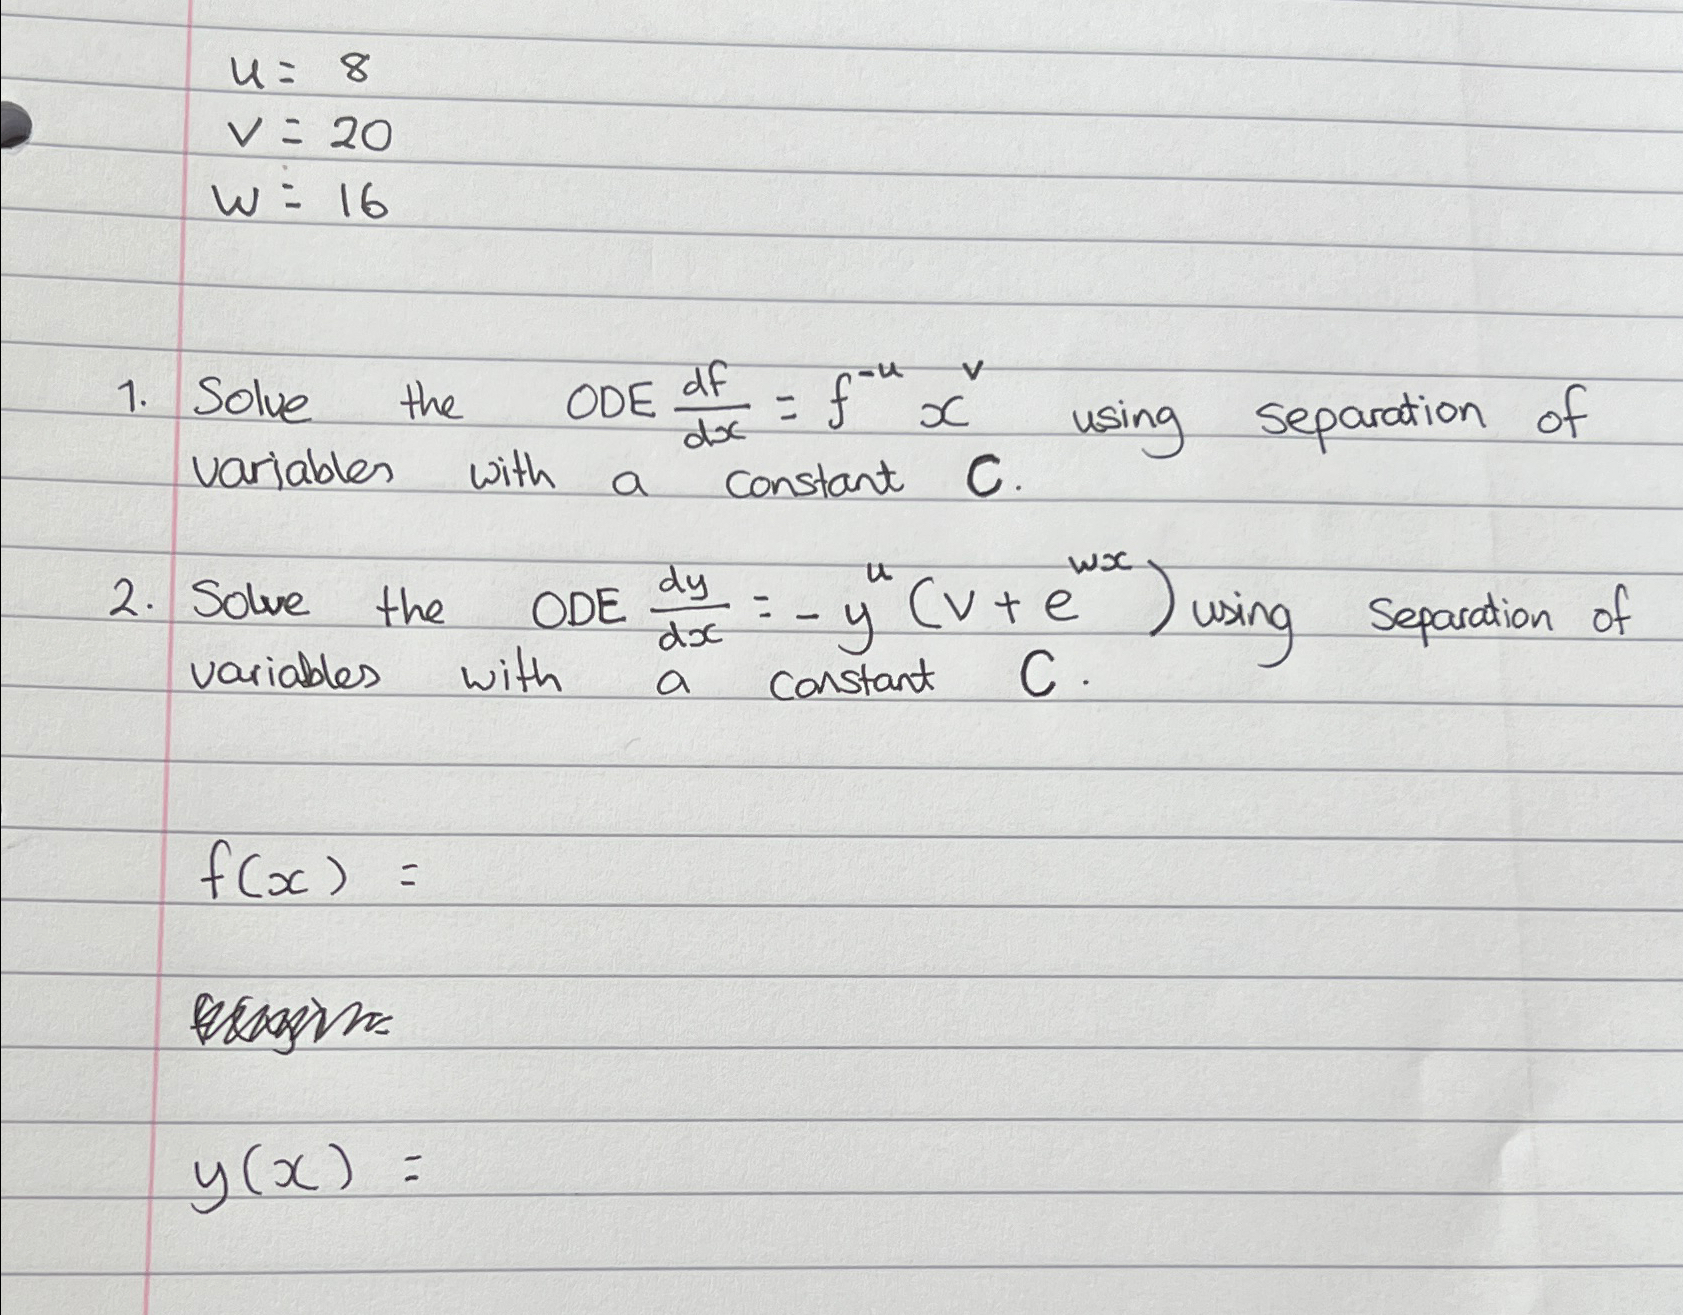 u = 8
v = 20
w = 16
1. Solve the ODE df/dx = f^-u x^v using separation of
variables with a constant C.
2. Solve the ODE dy/dx = - y^u (v + e^wx) using separation of
variables with a constant C.
f(x) =
y(x) =